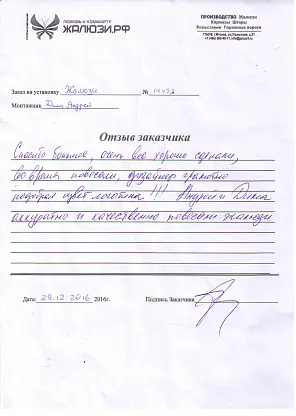 ЛЮБОВЬ К КОМФОРТУ
ЖАЛЮЗИ.РФ
ПРОИЗВОДСТВО Жалюзи
Карнизы Шторы
Рольставни Гаражные ворота
Заказ на установку Жалюзи № 14493
Монтажник Дима Андрей
Отзыв заказчика
Спасибо большое, очень все хорошо сделали,
во время повесили, дизайнер грамотно
подобрал цвет логотипа !!! Андрей и Дима
аккуратно и качественно повесили жалюзи
Дата: 29.12.2016 2016г. Подпись Заказчика